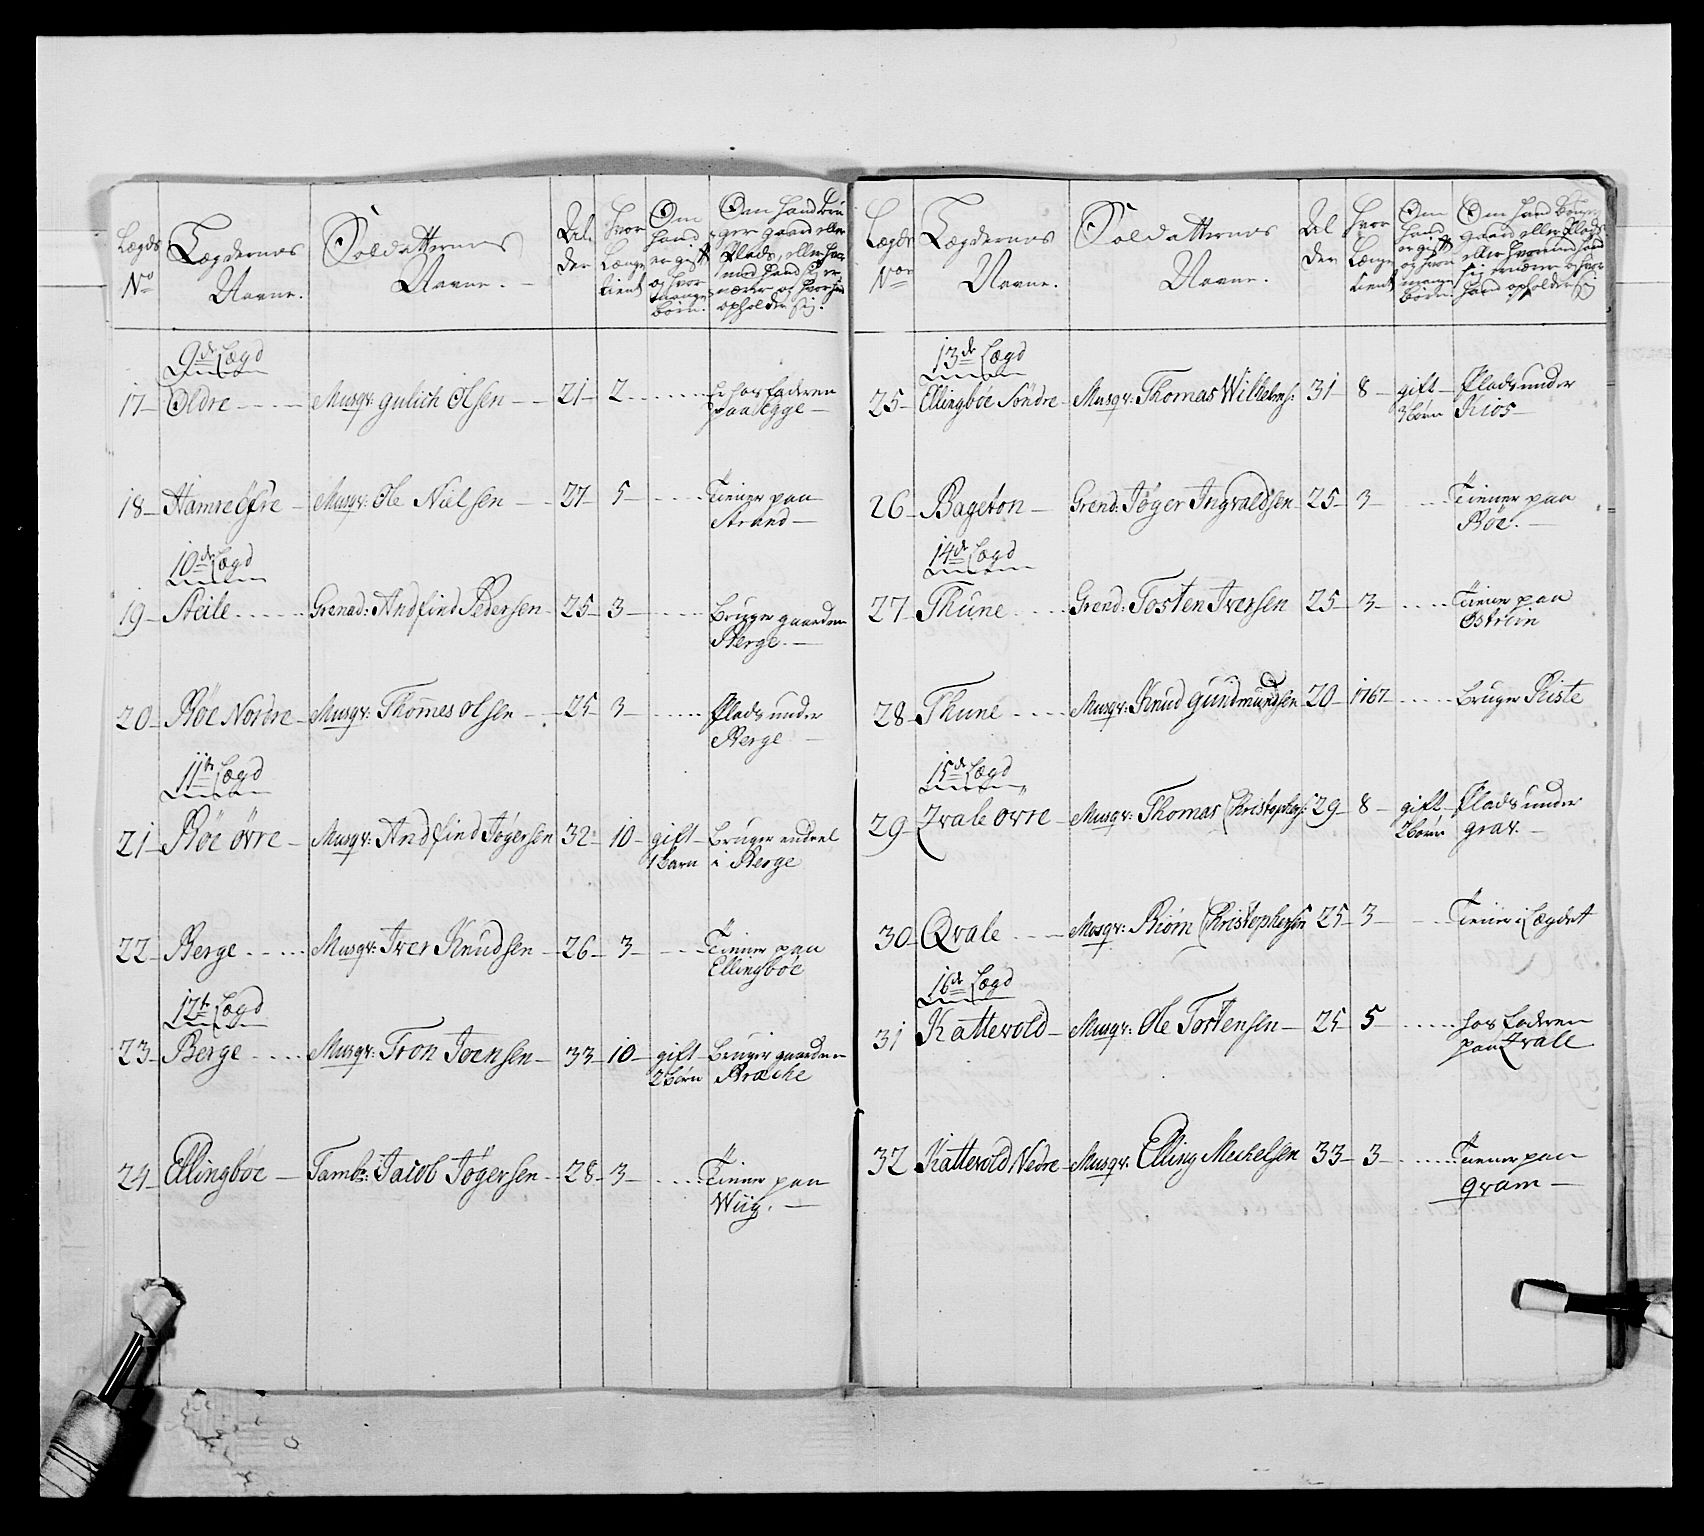 Lægds No | Lægdernes Navne. | Soldatternes Navne. | Alder | hvor Længe tient | Om hand er gift og hvor mange børn. | Om hand bruger gaard eller Plads, eller hvormed hand sig ernærer og hvor hand opholder sig.
9de Lægd
17 Oldre Musqr: Gulich Olsen 21 2 er hos faderen
paa Egge
18 Hamre Øfre Musqr: Ole Nielsen 27 5 Tiener paa
Strand
10de Lægd
19 Steile Grenad: Andfind Pedersen 25 3 Bruger gaarden
Berge.
20 Bøe Nordre Musqr: Thomes Olsen 25 3 Plads under
Berge
11te Lægd
21 Bøe øvre Musqr: Andfind Jøgersen 32 10 gift Bruger endeel
1 barn i Berge
22 Berge Musqr: Iver Knudsen 26 3 Tiener paa
Ellingbøe
12te Lægd
23 Berge Musqr: Tron Joensen 33 10 gift Bruger gaarden
2 børn Bræcke
24 Ellingbøe Tamb: Jacob Jøgersen 28 3 Tiener paa
Wiig.
Lægds Nor | Lægdernes Navne. | Soldatternes Navne. | Alder | hvor Længe tient | Om hand er gift og hvor mange børn. | Om hand bruger gaard eller Plads eller hvormed hand sig ernærer og hvor hand opholder sig
13de Lægd
25 Ellingbøe Söndre Musqr: Thomas Wilhelms: 31 8 gift Plads under
3 børn Kios
26 Bageton Grend: Jøger Ingvaldsen 25 3 Tiener paa
Bøe.
14de Lægd
27 Thune Grend: Tosten Iversen 25 3 Tiener paa
Østrein
28 Thune Musqr: Knud Gundmundsen 20 1767 Bruger Riste
15de Lægd
29 Qvale øvre Musqr: Thomas Christophers: 29 8 gift Plads under
2 børn grav.
30 Qvale Musqr: Biørn Christophersen 25 3 Tiener i Lægdet
16de Lægd
31 Kattevold Musqr: Ole Tostensen 25 5 hos faderen
paa Qvale
32 Kattevold Nedre Musqr: Elling Mechelsen 33 3 Tiener paa
Qvam